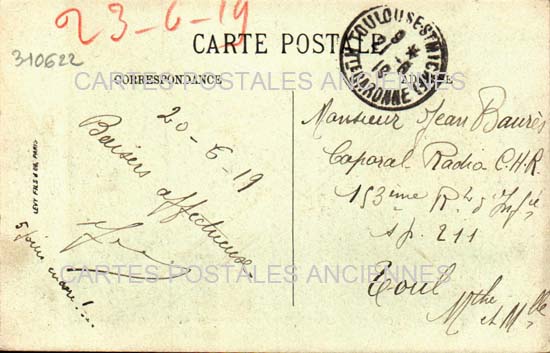 23-6-19
310622
CARTE POSTALE
CORRESPONDANCE
ADRESSE
TOULOUSE-ST MICHEL
HTE GARONNE
20-6-19
Baisers affectueux
5 jours encore!...
LEVY FILS & CIE, PARIS
Monsieur Jean Baurès
Caporal Radio C.H.R.
153ème Rt d'Infie
sp. 211
Toul
Mthe et Mlle
CARTES POSTALES ANCIENNES
CARTES POSTALES ANCIENNES